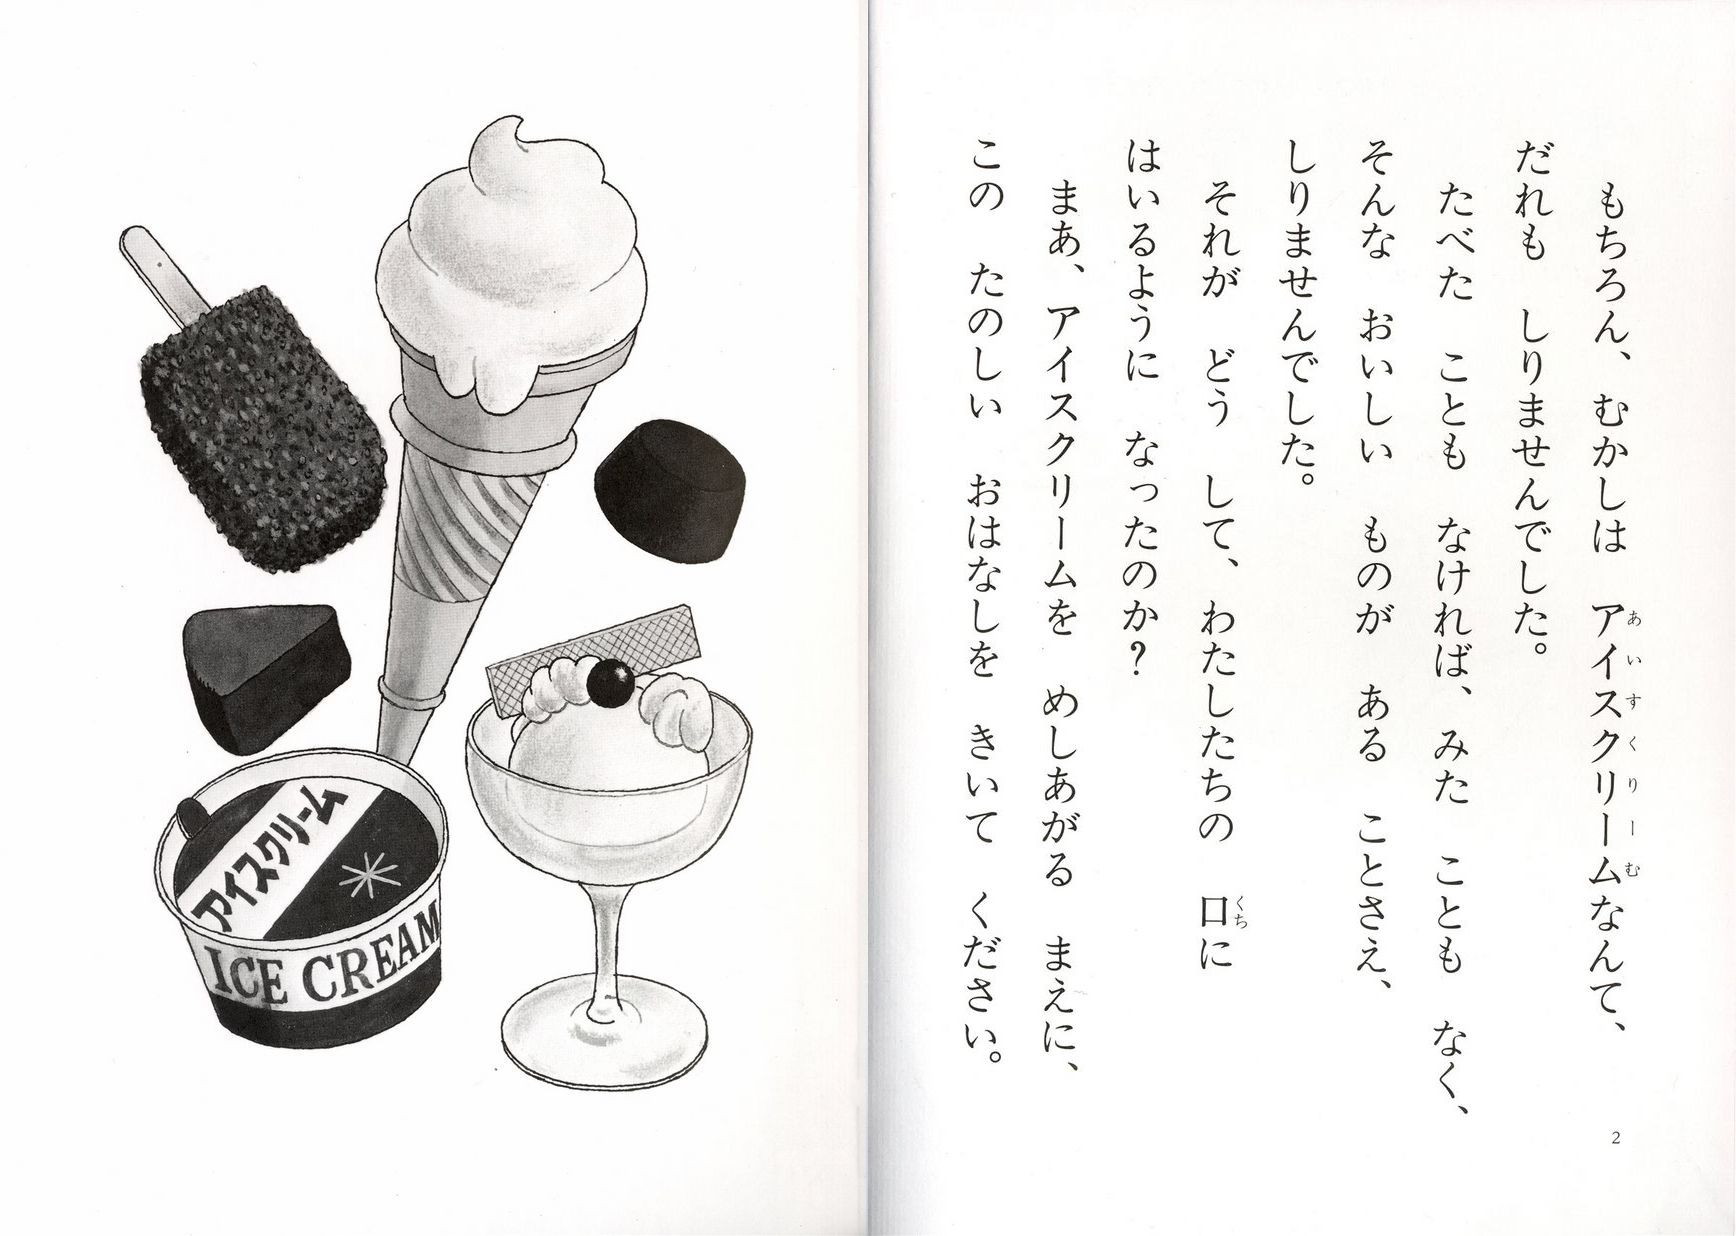 もちろん、むかしは アイスクリームなんて、
あいすくりーむ
だれも しりませんでした。
たべた ことも なければ、みた ことも なく、
そんな おいしい ものが ある ことさえ、
しりませんでした。
それが どう して、わたしたちの 口に
くち
はいるように なったのか?
まあ、アイスクリームを めしあがる まえに、
この たのしい おはなしを きいて ください。
2
アイスクリーム
ICE CREAM